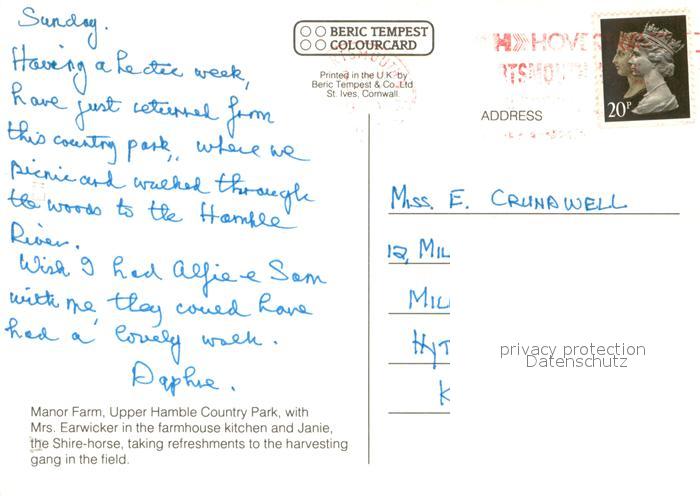 Sunday.
Having a hectic week,
have just returned from
this country park, where we
picnic and walked through
the woods to the Hamble
River.
Wish I had Alfie & Sam
with me, they could have
had a lovely walk.
Daphne.
Manor Farm, Upper Hamble Country Park, with
Mrs. Earwicker in the farmhouse kitchen and Janie,
the Shire-horse, taking refreshments to the harvesting
gang in the field.
BERIC TEMPEST
COLOURCARD
Printed in the U.K. by
Beric Tempest & Co. Ltd
St. Ives, Cornwall.
20P
ADDRESS
MISS. E. CRUNDWELL
12, MIL
MIL
HYT
K
privacy protection
Datenschutz